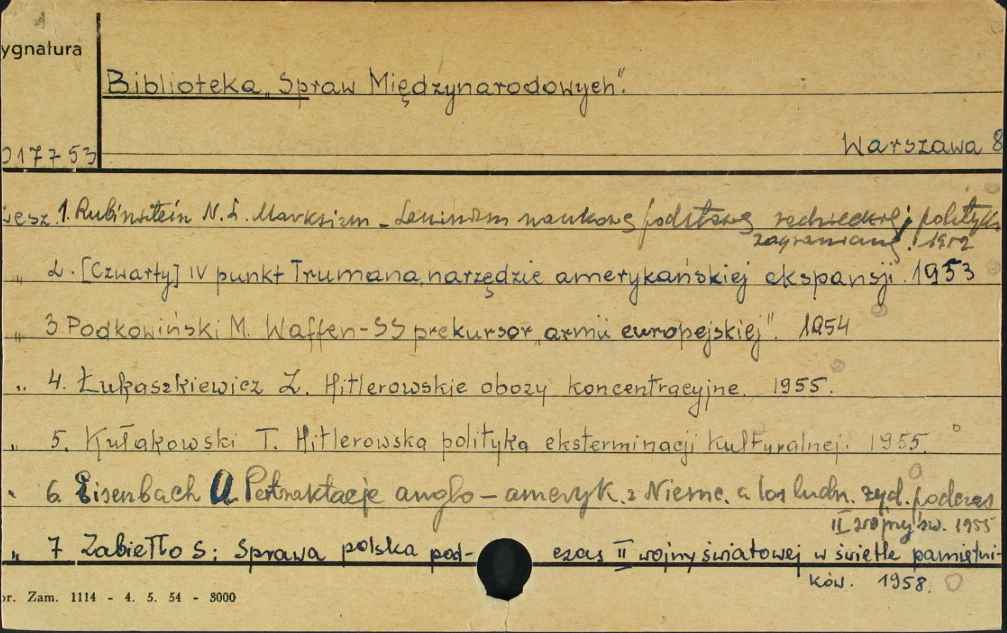 ygnatura
Biblioteka „Spraw Międzynarodowych".
01775 3
Warszawa 8
zesz. 1. Rubinstein N. L. Marksizm - Leninizm naukową podstawą radzieckiej polityki
zagranicznej. 1952
„ 2. [Czwarty] IV punkt Trumana, narzędzie amerykańskiej ekspansji. 1953
„ 3. Podkowiński M. Waffen-SS prekursor „armii europejskiej". 1954
„ 4. Łukaszkiewicz Z. Hitlerowskie obozy koncentracyjne. 1955.
„ 5. Kułakowski T. Hitlerowska polityka eksterminacji kulturalnej. 1955.
„ 6. Eisenbach A Pertraktacje anglo -ameryk. z Niemc. a los ludn. żyd. podczas
II wojny św. 1955
„ 7 Zabiełło S: Sprawa polska pod- czas II wojny światowej w świetle pamiętni-
ków. 1958.
or. Zam. 1114 - 4. 5. 54 - 3000